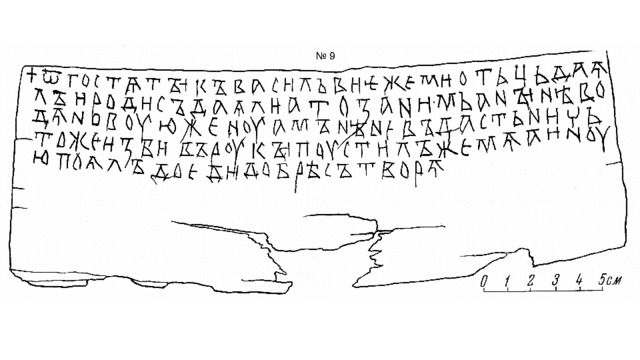 № 9
+ѿгостѧтꙑкъвасильвиѥжемиотьцьдаѧ
лъиродисъдаѧлиатозанимьанꙑнѣво
дѧновоуюженоуамънѣневъдастьничь
тожеизбивъроукꙑпоустилъжемѧаиноу
юпоѧлъдоедидобрѣсътворѧ
0 1 2 3 4 5 см